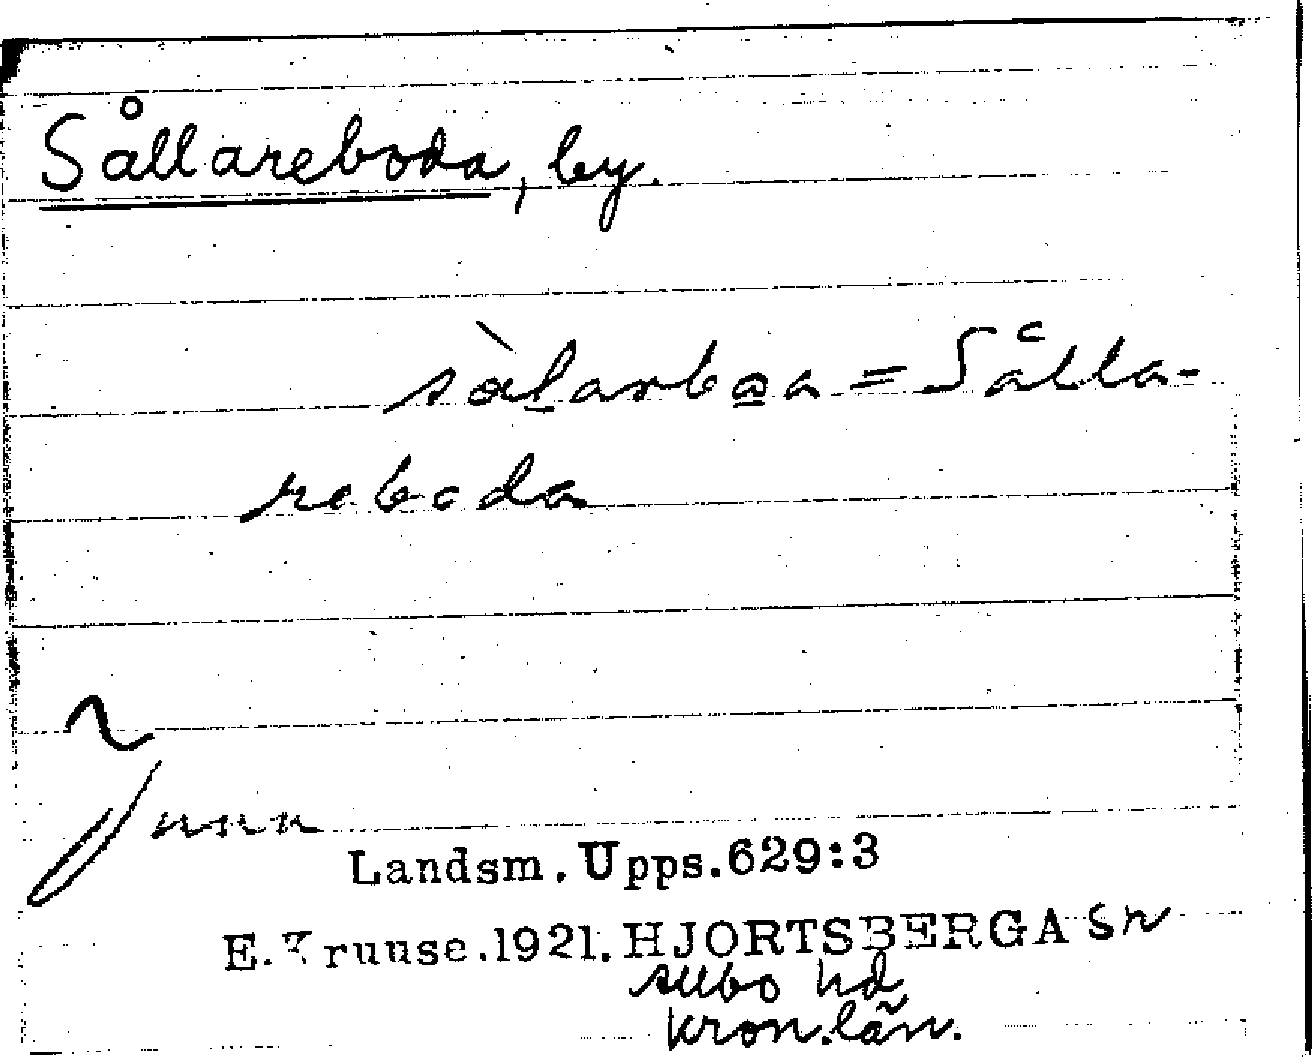 Sållareboda, by.
sàlarboa = Sålla-
reboda
Landsm. Upps. 629:3
E. Kruuse. 1921. HJORTSBERGA sn
Allbo hd
Kron. län.